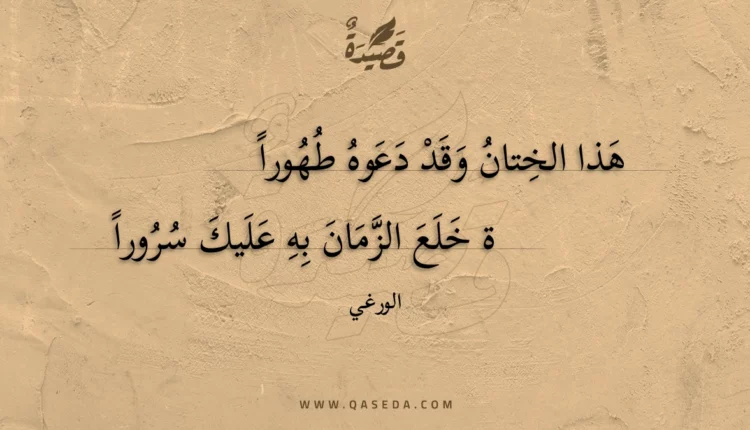 قَصِيدَةٌ
هَذا الخِتانُ وَقَدْ دَعَوهُ طُهُوراً
ة خَلَعَ الزَّمَانَ بِهِ عَلَيكَ سُرُوراً
الورغي
WWW.QASEDA.COM